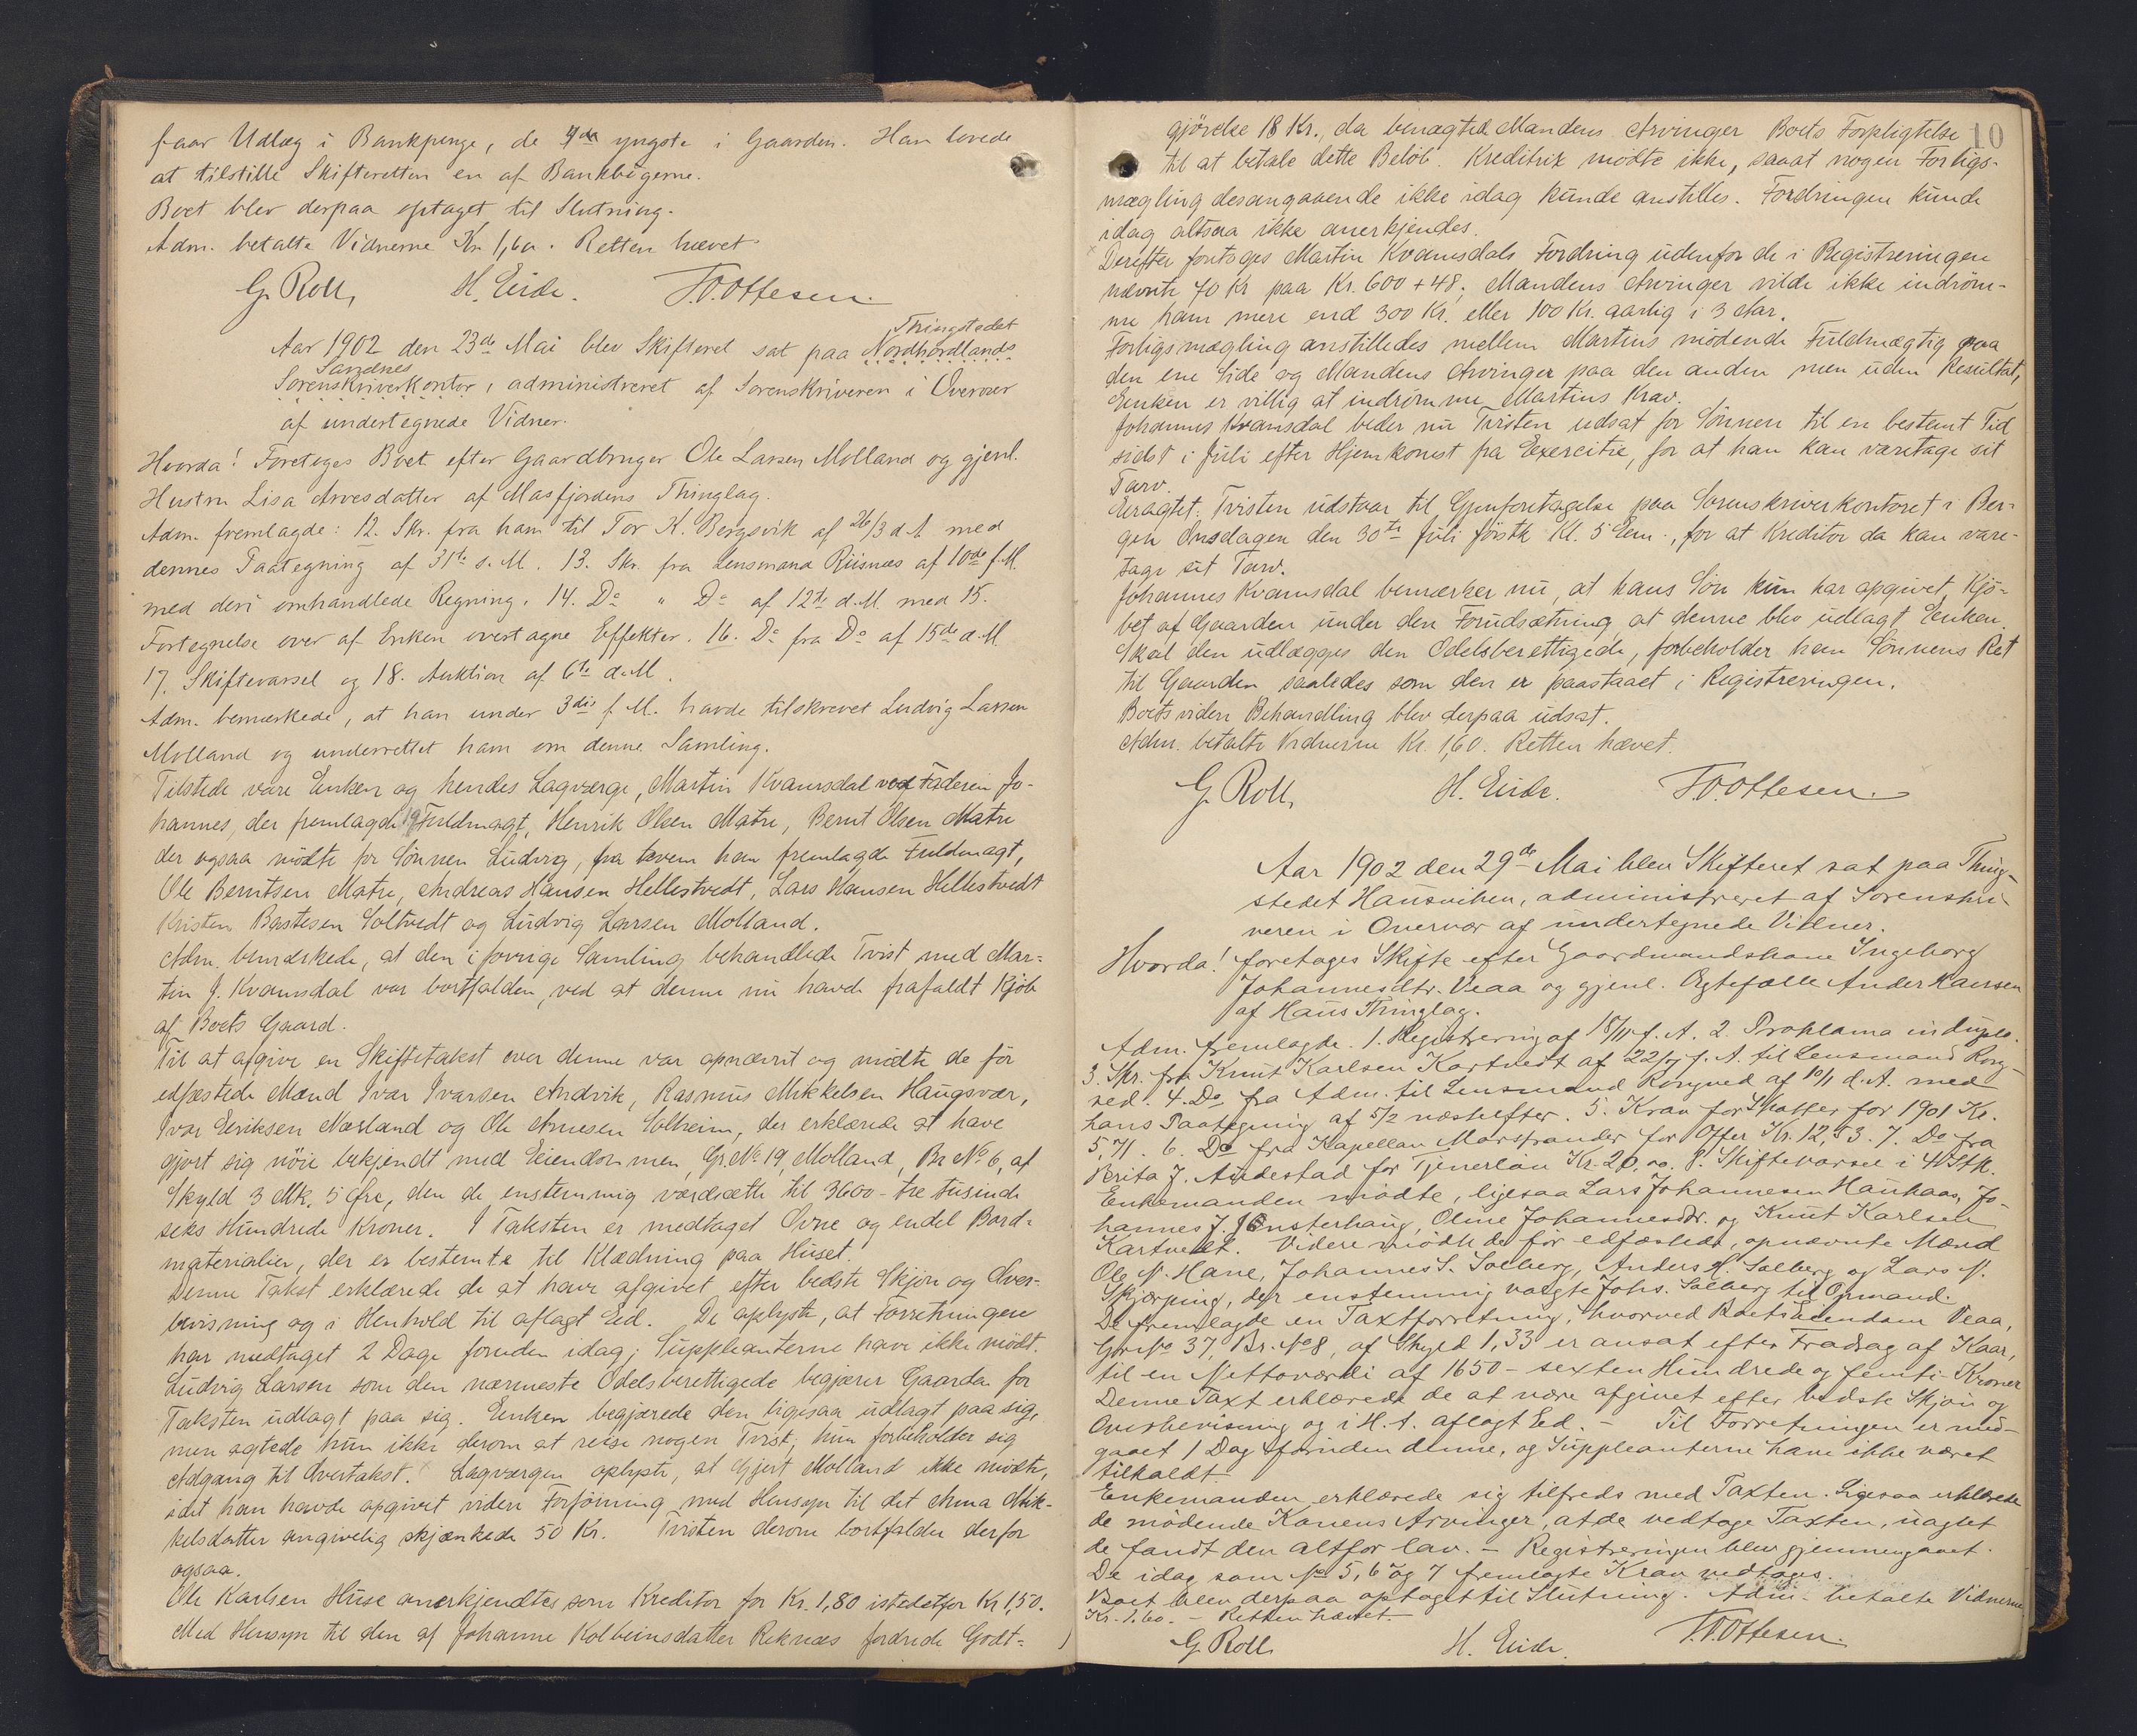 faar Udlæg i Bankpenge, de 4de yngste i Gaarden. Han lovede
at tilstille Skifteretten en af Bankbøgerne.
Boet blev derpaa optaget til Slutning.
Adm. betalte Vidnerne Kr. 1,60. Retten hævet
G. Roll, H. Eide. T.O. Ottesen.
Thingstedet
Aar 1902 den 23de Mai blev Skifteret sat paa Nordhordlands
Sandnes
Sorenskriverkontor, administreret af Sorenskriveren i Overvær
af undertegnede Vidner.
Hvorda! Foretoges Boet efter Gaardbruger Ole Larsen Molland og gjenl.
Hustru Lisa Arvesdatter af Masfjordens Thinglag.
Adm. fremlagde: 12. Skr. fra ham til Tor K. Bergsvik af 26/3 d.A. med
dennes Paategning af 31te s. M. 13. Skr. fra Lensmand Riisnæs af 10de f.M.
med deri omhandlede Regning. 14. Do " Do af 12te d.M. med 15.
Fortegnelse over af Enken overtagne Effekter. 16. Do fra Do af 15de d.M.
17. Skiftevarsel og 18. Auktion af 6te d.M.
Adm. bemærkede, at han under 3die f. M. havde tilskrevet Ludvig Larsen
Molland og underrettet ham om denne Samling.
Tilstede vare Enken og hendes Lagværge, Martin Kvamsdal ved Faderen Jo-
hannes, der fremlagde 19 Fuldmagt, Henrik Olsen Matre, Bernt Olsen Matre
der ogsaa mødte for Sønnen Ludvig, fra hvem han fremlagde Fuldmagt,
Ole Berntsen Matre, Andreas Hansen Hellestvedt, Lars Hansen Hellestvedt
Kristen Bastesen Soltvedt og Ludvig Larsen Molland.
Adm. bemærkede, at den i forrige Samling behandlede Tvist med Mar-
tin J. Kvamsdal var bortfalden, ved at denne nu havde frafaldt Kjøb
af Boets Gaard.
Til at afgive en Skiftetakst over denne var opnævnt og mødte de før
edfæstede Mænd Ivar Ivarsen Andvik, Rasmus Mikkelsen Haugsvær,
Ivar Eriksen Næsland og Ole Arnesen Solheim, der erklærede at have
gjort sig nöie bekjendt med Eiendommen, Gr. No 19, Molland, Br No 6, af
Skyld 3 Mk. 5 Øre, den de enstemmig værdsætte til 3600 - tre tusinde
seks Hundrede Kroner. I Taksten er medtaget Ovne og endel Bord-
materialier, der er bestemte til Klædning paa Huset.
Denne Takst erklærede de at have afgivet efter bedste Skjøn og Over-
bevisning og i Henhold til aflagt Eed. De oplyste, at Forretningen
har medtaget 2 Dage foruden idag; Suppleanterne have ikke mödt.
Ludvig Larsen som den nærmeste Odelsberettigede begjærer Gaarden for
Taksten udlagt paa sig. Enken begjærede den ligesaa udlagt paa sig,
men agtede hun ikke derom at reise nogen Tvist, hun forbeholder sig
Adgang til Overtakst. Lagværgen oplyste, at Gjert Molland ikke mödte,
idet han havde opgivet videre Forføining med Hensyn til det Anna Mik-
kelsdatter angivelig skjænkede 50 Kr. Tvisten derom bortfalder derfor
ogsaa.
Ole Karlsen Huse anerkjendtes som Kreditor for Kr. 1,80 istedetfor Kr 1,50.
Med Hensyn til den af Johanne Kolbeinsdatter Reknæs fordrede Godt-
10
gjørelse 18 Kr., da benægted Mandens Arvinger Boets Forpligtelse
til at betale dette Beløb. Kreditrix mødte ikke, saaat nogen Forligs-
mægling desangaaende ikke idag kunde anstilles. Fordringen kunde
idag altsaa ikke anerkjendes.
Derefter foretoges Martin Kvamsdals Fordring udenfor de i Registreringen
nævnte 70 Kr paa Kr. 600 + 48. Mandens Arvinger vilde ikke indrøm-
me ham mere end 300 Kr. eller 100 Kr. aarlig i 3 Aar.
Forligsmægling anstilledes mellem Martins mødende Fuldmægtig paa
den ene Side og Mandens Arvinger paa den anden men uden Resultat,
Enken er villig at indrømme Martins Krav.
Johannes Kvamsdal beder nu Tvisten udsat for Sønnen til en bestemt Tid
sidst i Juli efter Hjemkomst fra Exercitie, for at han kan varetage sit
Tarv.
Eragtet: Tvisten udstaar til Gjenforetagelse paa Sorenskriverkontoret i Ber-
gen Onsdagen den 30te Juli førstk Kl. 5 Em., for at Kreditor da kan vare-
tage sit Tarv.
Johannes Kvamsdal bemærker nu, at hans Søn kun har opgivet Kjö-
bet af Gaarden under den Forudsætning at denne blev udlagt Enken.
Skal den udlægges den Odelsberettigede, forbeholder han Sønnens Ret
til Gaarden saaledes som den er paastaaet i Registreringen.
Boets videre Behandling blev derpaa udsat.
Adm. betalte Vidnerne Kr. 1,60. Retten hævet.
G. Roll, H. Eide. T.O. Ottesen.
Aar 1902 den 29de Mai blev Skifteret sat paa Thing-
stedet Hausviken, administreret af Sorenskri-
veren i Overvær af undertegnede Vidner.
Hvorda! foretages Skifte efter Gaardmandskone Ingeborg
Johannesdtr. Veaa og gjenl. Ægtefælle Anders Hansen
af Haus Thinglag.
Adm. fremlagde. 1. Registrering af 18/11 f. A. 2. Proklama in duplo.
3. Skr. fra Knut Karlsen Kartvedt af 22/7 f. A. til Lensmand Rong-
ved. 4. Do fra Adm. til Lensmand Rongved af 10/1 d.A. med
hans Paategning af 5/2 næstefter. 5. Krav for Skatter for 1901 Kr.
5,71. 6. Do fra Kapellan Marstrander for Offer Kr. 12,53. 7. Do fra
Brita J. Andestad for Tjenerløn Kr. 20,00. 8. Skiftevarsel i 4 Stk.
Enkemanden mødte, ligesaa Lars Johannesen Haukaas, Jo-
hannes J. Mønsterhaug, Oline Johannesdtr. og Knut Karlsen
Kartvedt. Videre mødte de før edfæstede, opnævnte Mænd
Ole N. Hane, Johannes S. Solberg, Anders M. Solberg og Lars N.
Skjerping, der enstemmig valgte Johs. Solberg til Opmand.
De fremlagde en Taxtforretning, hvorved Boets Eiendom Veaa,
Gr. No 37, Br. No 8, af Skyld 1,33 er ansat efter Fradrag af Kaar,
til en Nettoværdi af 1650 - sexten Hundrede og femti Kroner
Denne Taxt erklærede de at være afgivet efter bedste Skjøn og
Overbevisning og i H. t. aflagt Eed. - Til Forretningen er med-
gaaet 1 Dag foruden denne, og Suppleanterne have ikke været
tilkaldt.
Enkemanden erklærede sig tilfreds med Taxten. Ligesaa erklærede
de mødende Konens Arvinger, at de vedtage Taxten, uagtet
de fandt den altfor lav. - Registreringen blev gjennemgaaet.
De idag som No 5, 6 og 7 fremlagte Krav vedtages.
Boet blev derpaa optaget til Slutning. Adm. betalte Vidnerne
Kr. 1.60. - Retten hævet.
G. Roll H. Eide. T.O. Ottesen.